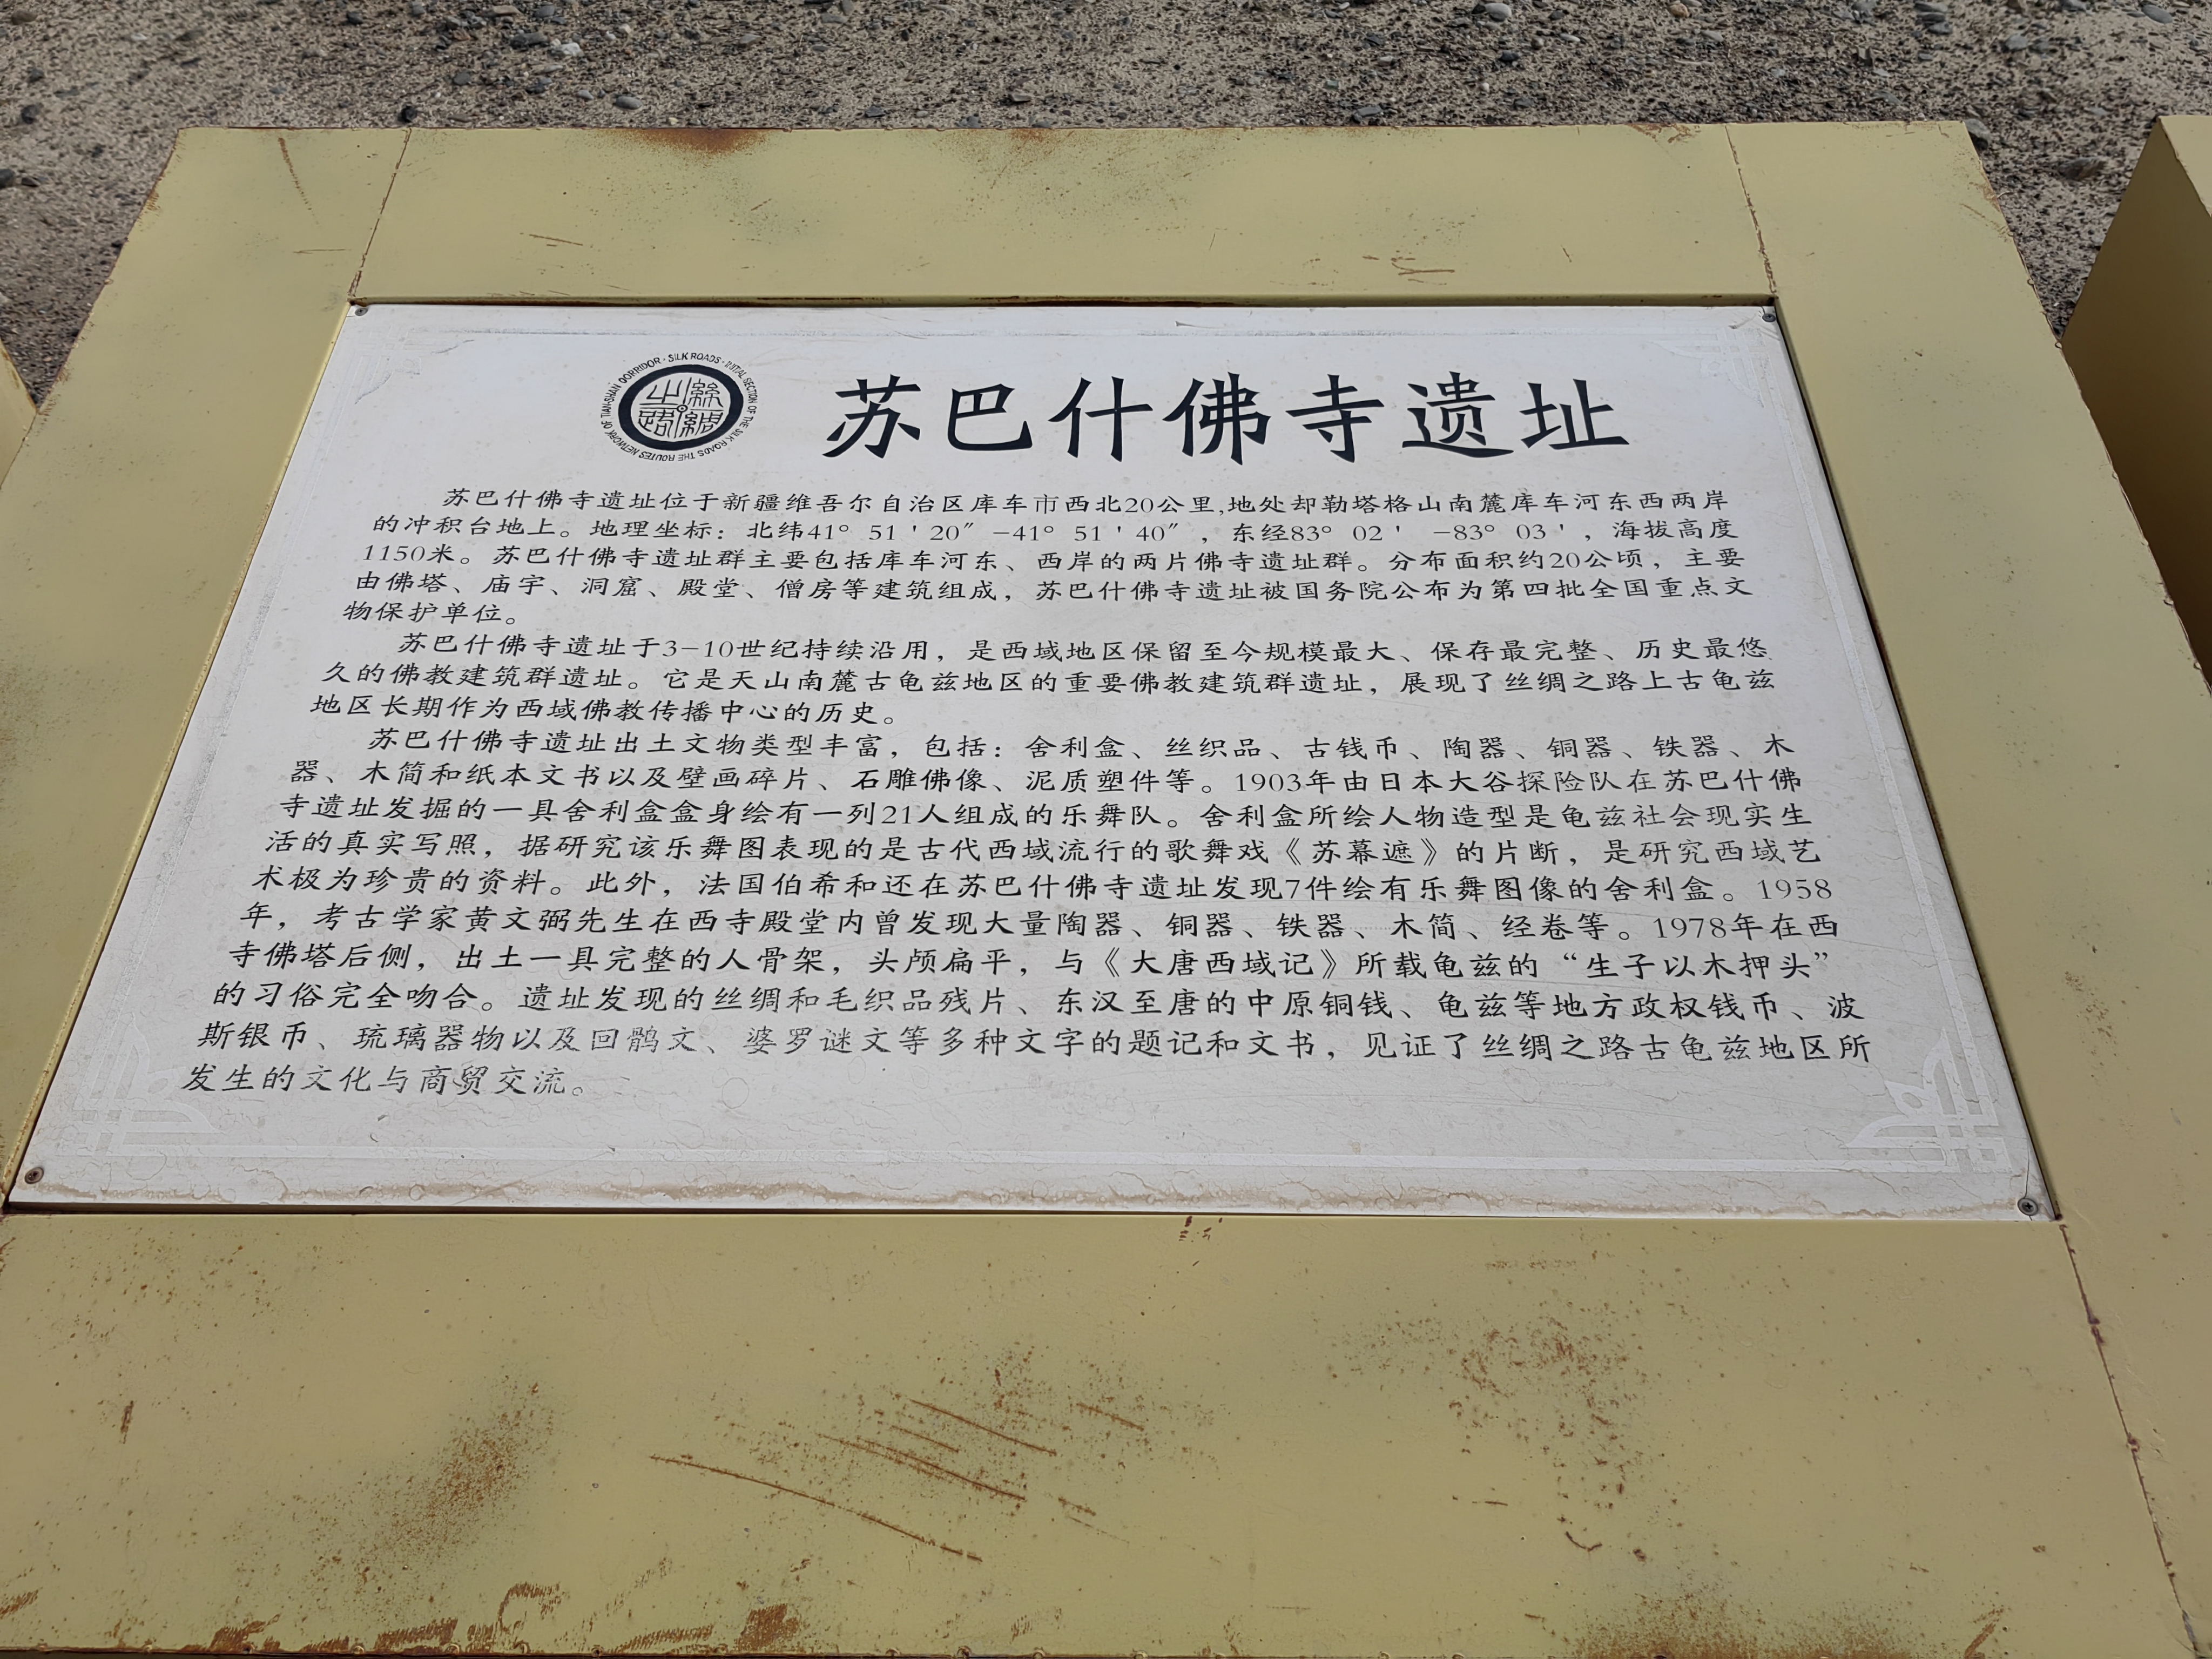 苏巴什佛寺遗址
SILK ROADS THE ROUTES NETWORK OF TIAN-SHAN CORRIDOR · SILK ROADS · INITIAL SECTION OF THE
絲綢之路
苏巴什佛寺遗址位于新疆维吾尔自治区库车市西北20公里,地处却勒塔格山南麓库车河东西两岸
的冲积台地上。地理坐标：北纬41° 51＇20″ -41° 51＇40″，东经83° 02＇ -83° 03＇，海拔高度
1150米。苏巴什佛寺遗址群主要包括库车河东、西岸的两片佛寺遗址群。分布面积约20公顷，主要
由佛塔、庙宇、洞窟、殿堂、僧房等建筑组成，苏巴什佛寺遗址被国务院公布为第四批全国重点文
物保护单位。
苏巴什佛寺遗址于3-10世纪持续沿用，是西域地区保留至今规模最大、保存最完整、历史最悠
久的佛教建筑群遗址。它是天山南麓古龟兹地区的重要佛教建筑群遗址，展现了丝绸之路上古龟兹
地区长期作为西域佛教传播中心的历史。
苏巴什佛寺遗址出土文物类型丰富，包括：舍利盒、丝织品、古钱币、陶器、铜器、铁器、木
器、木简和纸本文书以及壁画碎片、石雕佛像、泥质塑件等。1903年由日本大谷探险队在苏巴什佛
寺遗址发掘的一具舍利盒盒身绘有一列21人组成的乐舞队。舍利盒所绘人物造型是龟兹社会现实生
活的真实写照，据研究该乐舞图表现的是古代西域流行的歌舞戏《苏幕遮》的片断，是研究西域艺
术极为珍贵的资料。此外，法国伯希和还在苏巴什佛寺遗址发现7件绘有乐舞图像的舍利盒。1958
年，考古学家黄文弼先生在西寺殿堂内曾发现大量陶器、铜器、铁器、木简、经卷等。1978年在西
寺佛塔后侧，出土一具完整的人骨架，头颅扁平，与《大唐西域记》所载龟兹的“生子以木押头”
的习俗完全吻合。遗址发现的丝绸和毛织品残片、东汉至唐的中原铜钱、龟兹等地方政权钱币、波
斯银币、琉璃器物以及回鹘文、婆罗谜文等多种文字的题记和文书，见证了丝绸之路古龟兹地区所
发生的文化与商贸交流。